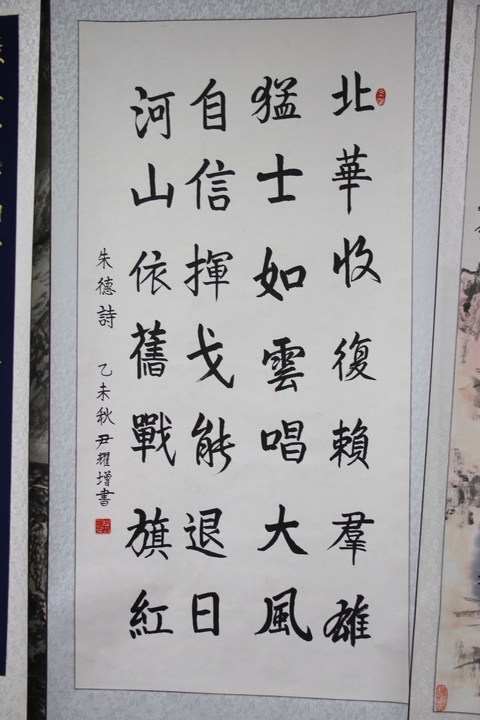 北華收復賴羣雄
猛士如雲唱大風
自信揮戈能退日
河山依舊戰旗紅
朱德詩 乙未秋尹耀增書